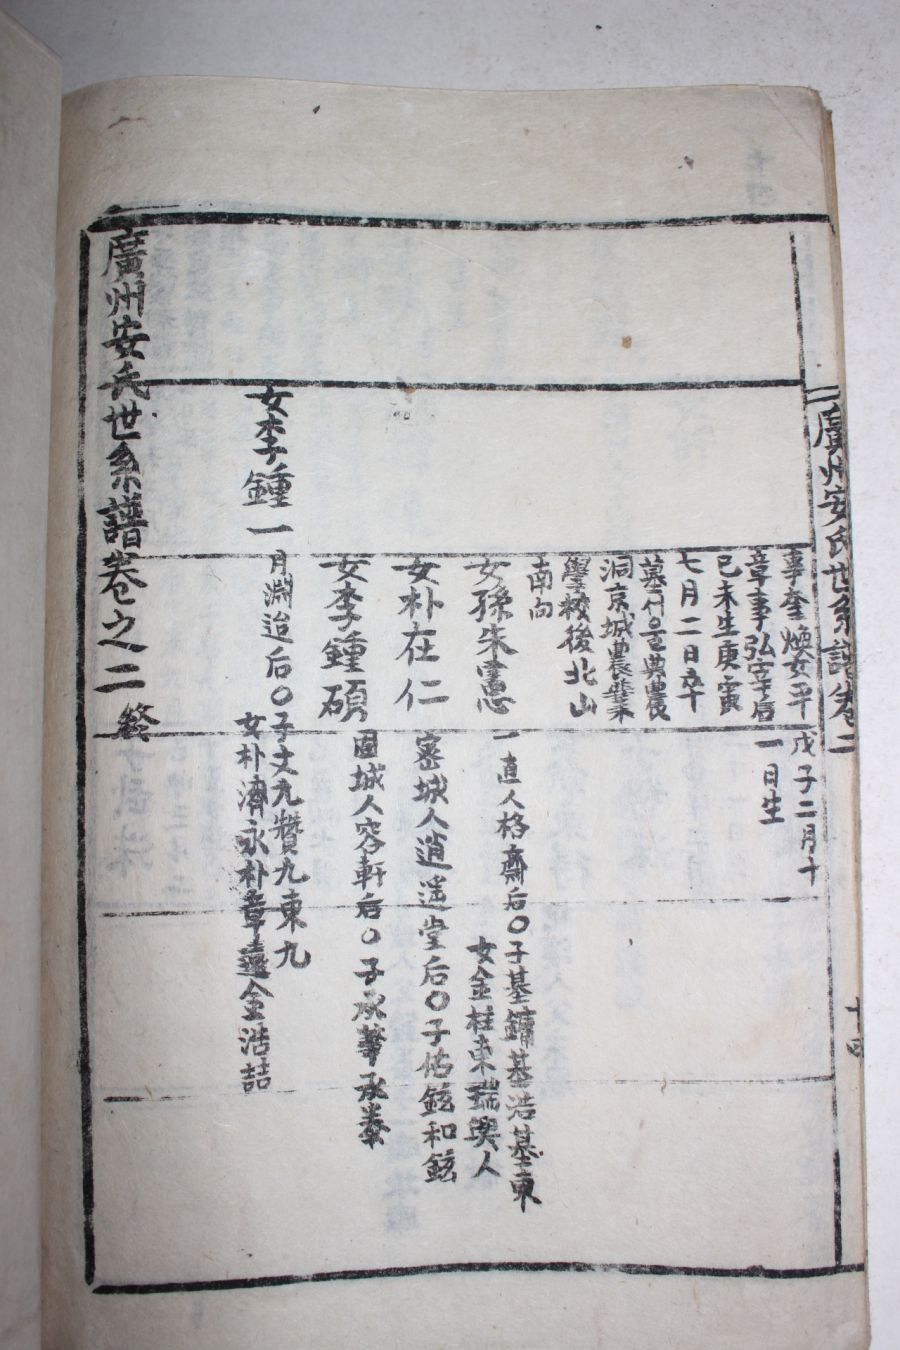 廣州安氏世系譜卷二
十四
事奎煥女平
章事弘宰后
己未生庚寅
七月二日卒
墓서울典農
洞京城農業
學校後北山
南向
戊子二月十
一日生
女孫朱憲
一直人格齋后〇子基鏞基浩基東
女金柱東瑞興人
女朴在仁
密城人逍遥堂后〇子佑鉉和鉉
女李鍾碩
固城人容軒后〇子承華承
女李鍾一
月淵迨后〇子丈九贊九東九
女朴濟永朴章遠金浩喆
廣州安氏世系譜卷之二 終